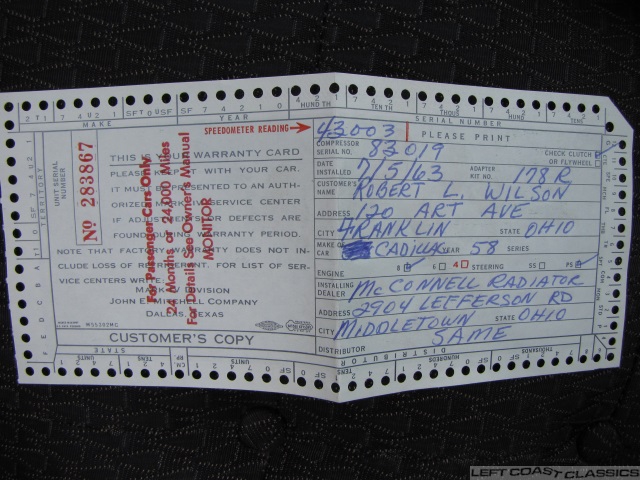 MAKE
YEAR
SERIAL NUMBER
SPEEDOMETER READING
43003
PLEASE PRINT
TERRITORY
UNIT SERIAL NUMBER
No 283867
THIS IS YOUR WARRANTY CARD
PLEASE KEEP IT WITH YOUR CAR.
IT MUST BE PRESENTED TO AN AUTH-
ORIZED MARK IV SERVICE CENTER
IF ADJUSTMENTS OR DEFECTS ARE
FOUND DURING WARRANTY PERIOD.
NOTE THAT FACTORY WARRANTY DOES NOT IN-
CLUDE LOSS OF REFRIGERANT. FOR LIST OF SER-
VICE CENTERS WRITE:
MARK IV DIVISION
JOHN E. MITCHELL COMPANY
DALLAS, TEXAS
CUSTOMER'S COPY
For Passenger Cars Only
24 Months or 24,000 Miles
For Details See Owner's Manual
MONITOR
COMPRESSOR SERIAL NO. 83019
CHECK CLUTCH
OR FLYWHEEL
DATE INSTALLED 7/5/63 ADAPTER KIT NO. 178 R
CUSTOMER'S NAME ROBERT L. WILSON
ADDRESS 120 ART AVE
CITY FRANKLIN STATE OHIO
MAKE OF CAR CADILLK YEAR 58 SERIES
ENGINE 8 6 4 STEERING SS PS
INSTALLING DEALER MCCONNELL RADIATOR
ADDRESS 2904 LEFFERSON RD
CITY MIDDLETOWN STATE OHIO
DISTRIBUTOR SAME
STATE
DISTRIBUTOR
LEFT COAST CLASSICS